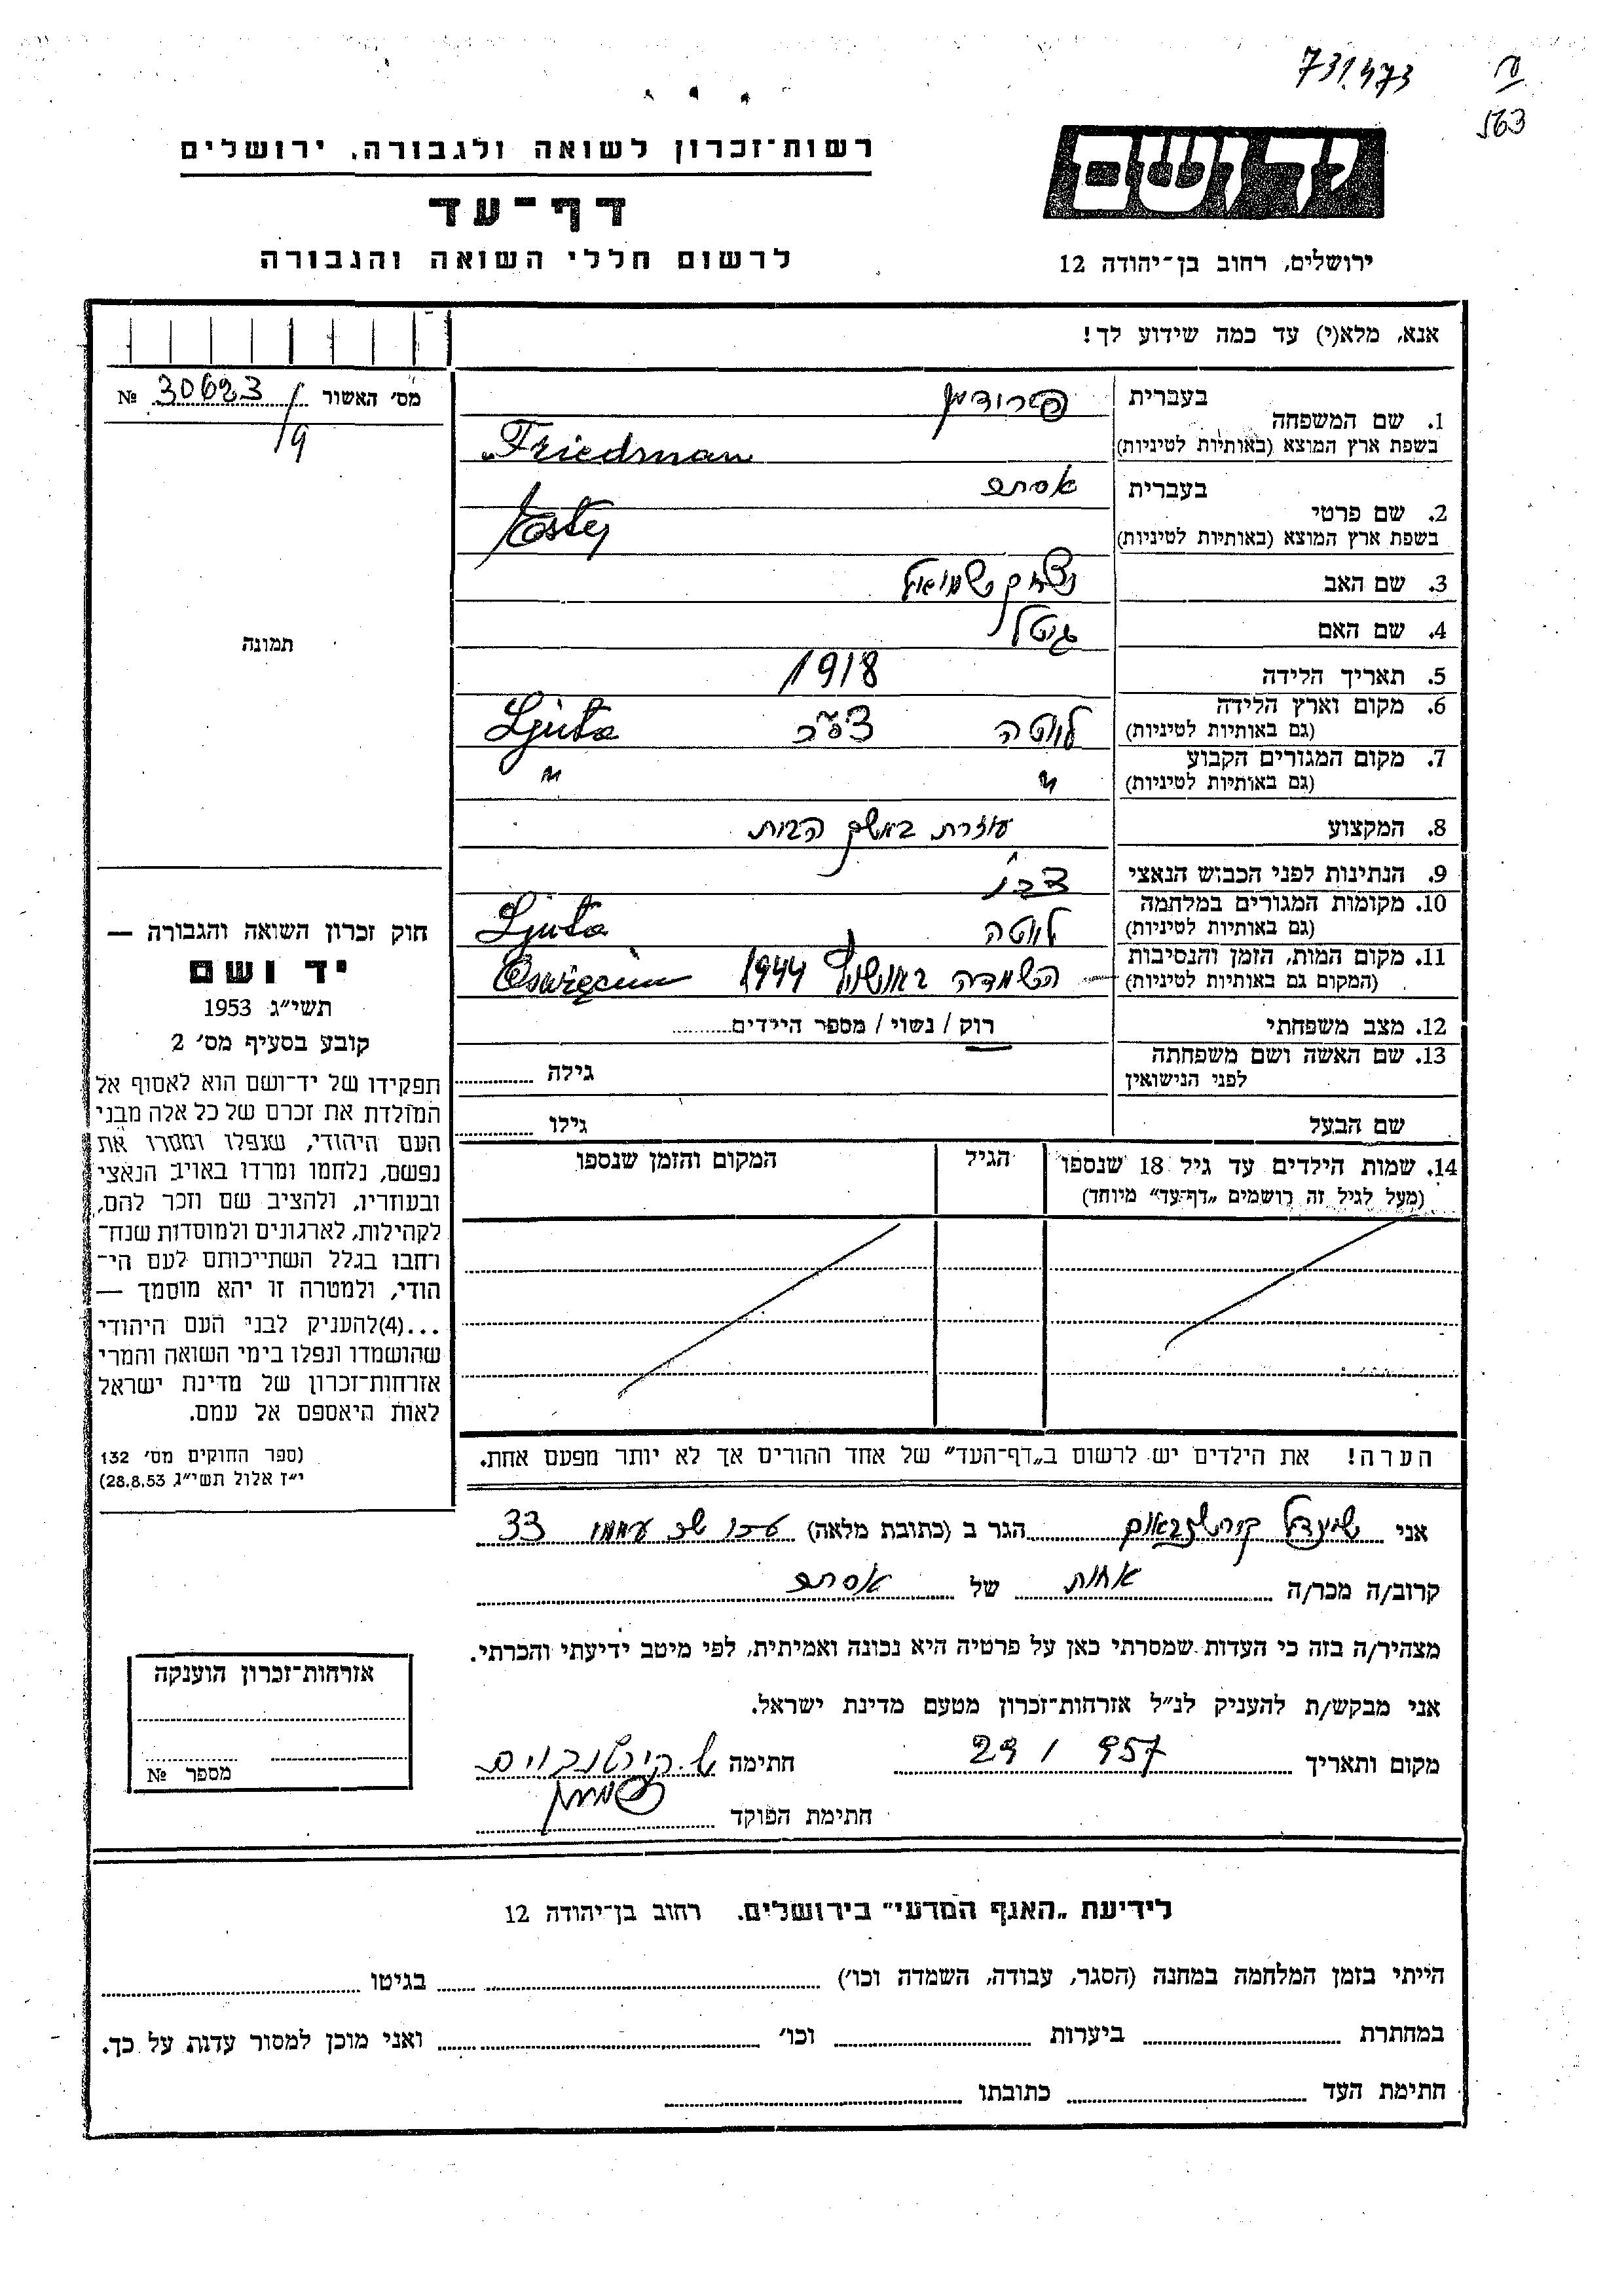 731.473
563
יד ושם
ירושלים, רחוב בן־יהודה 12
רשות־זכרון לשואה ולגבורה, ירושלים
דף־עד
לרשום חללי השואה והגבורה
אנא, מלא(י) עד כמה שידוע לך!
מס׳ האשור 30623/9 №
תמונה
1. שם המשפחה בעברית פרידמן
בשפת ארץ המוצא (באותיות לטיניות) Friedman
2. שם פרטי בעברית אסתר
בשפת ארץ המוצא (באותיות לטיניות) Ester
3. שם האב יצחק שמואל
4. שם האם גיטל
5. תאריך הלידה 1918
6. מקום וארץ הלידה (גם באותיות לטיניות) לוטה צ׳כ Ljuta
7. מקום המגורים הקבוע (גם באותיות לטיניות) " "
8. המקצוע עוזרת במשק הבית
9. הנתינות לפני הכבוש הנאצי
10. מקומות המגורים במלחמה (גם באותיות לטיניות) לוטה Ljuta
11. מקום המות, הזמן והנסיבות (המקום גם באותיות לטיניות) השמדה באושוויץ 1944 Oswięcim
12. מצב משפחתי רוק / נשוי / מספר הילדים
13. שם האשה ושם משפחתה לפני הנישואין גילה
שם הבעל גילו
14. שמות הילדים עד גיל 18 שנספו
(מעל לגיל זה רושמים „דף־עד" מיוחד)
הגיל
המקום והזמן שנספו
הערה! את הילדים יש לרשום ב„דף־העד" של אחד ההורים אך לא יותר מפעם אחת.
חוק זכרון השואה והגבורה —
יד ושם
תשי״ג 1953
קובע בסעיף מס׳ 2
תפקידו של יד־ושם הוא לאסוף אל
המולדת את זכרם של כל אלה מבני
העם היהודי, שנפלו ומסרו את
נפשם, נלחמו ומרדו באויב הנאצי
ובעוזריו, ולהציב שם וזכר להם,
לקהילות, לארגונים ולמוסדות שנח־
רחבו בגלל השתייכותם לעם הי־
הודי, ולמטרה זו יהא מוסמך —
...(4)להעניק לבני העם היהודי
שהושמדו ונפלו בימי השואה והמרי
אזרחות־זכרון של מדינת ישראל
לאות היאספם אל עמם.
(ספר החוקים מס׳ 132
י״ז אלול תשי״ג 28.8.53)
אני שיינדל קירשנבאום הגר ב (כתובת מלאה) 33
קרוב/ה מכר/ה אחות של אסתר
מצהיר/ה בזה כי העדות שמסרתי כאן על פרטיה היא נכונה ואמיתית, לפי מיטב ידיעתי והכרתי.
אני מבקש/ת להעניק לנ״ל אזרחות־זכרון מטעם מדינת ישראל.
מקום ותאריך 29 / 957 חתימה ש. קירשנבוים
חתימת הפוקד
אזרחות־זכרון הוענקה
מספר №
לידיעת „האגף המדעי" בירושלים. רחוב בן־יהודה 12
הייתי בזמן המלחמה במחנה (הסגר, עבודה, השמדה וכו׳) בגיטו
במחתרת ביערות וכו׳ ואני מוכן למסור עדות על כך.
חתימת העד כתובתו